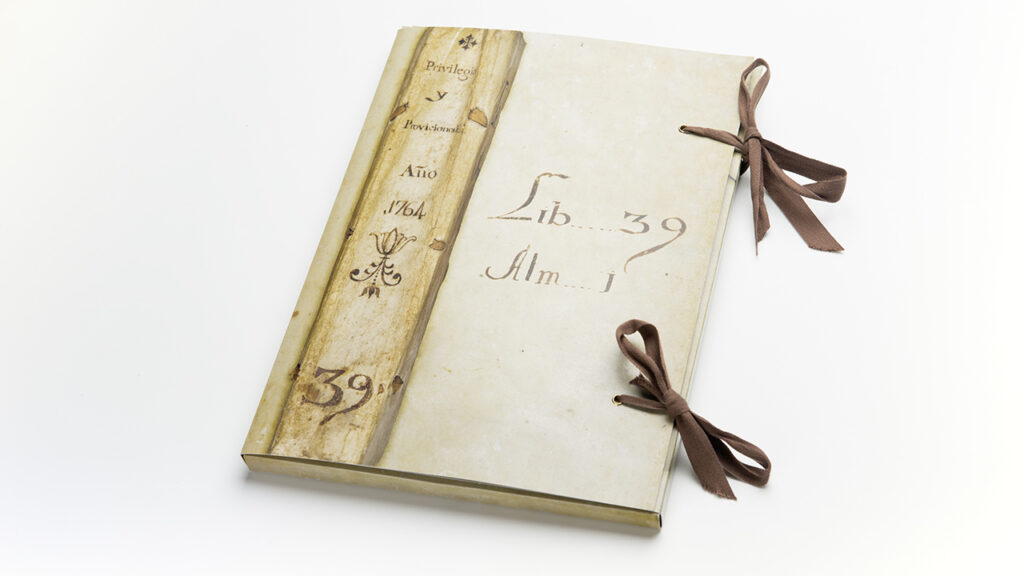 Privilegios
y
Provicionales
Año
1764
39
Lib.....39
Alm....j